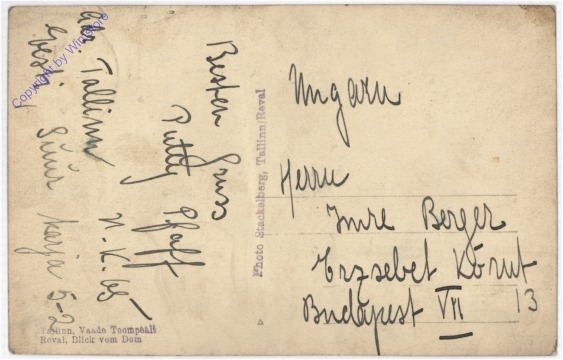 Besten Gruss
Putty Pfaff
N.K. 65
Adr. Tallinn
Eesti, Suur Karja 5-2
Ungarn
Herrn
Imre Berger
Erzsebet Körut
13
Budapest VII
Photo Stackelberg, Tallinn/Reval
Tallinn, Vaade Toompeált
Reval, Blick vom Dom
Copyright by Winsboro